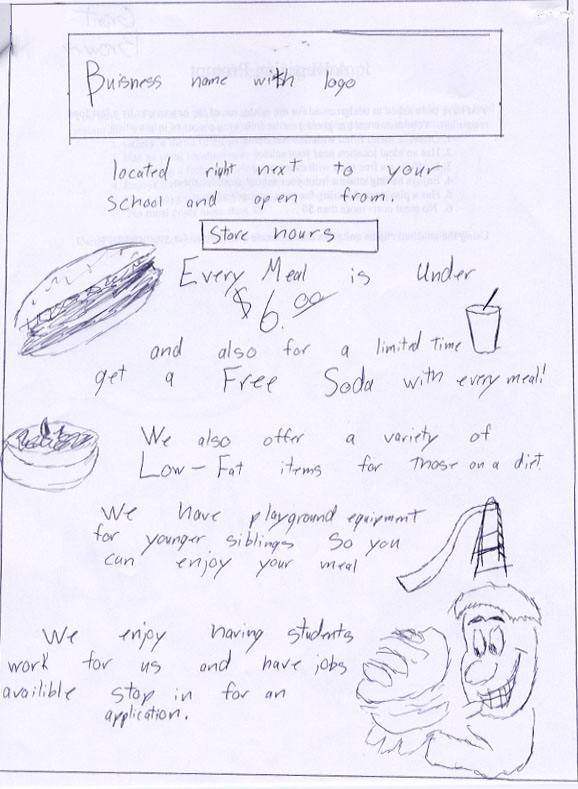 Buisness name with logo
located right next to your
school and open from.
Store hours
Every Meal is Under
$6.00
and also for a limited Time
get a Free Soda with every meal!
We also offer a variety of
Low-Fat items for those on a diet.
We have playground equipment
for younger siblings so you
can enjoy your meal
We enjoy having students
work for us and have jobs
availible stop in for an
application.